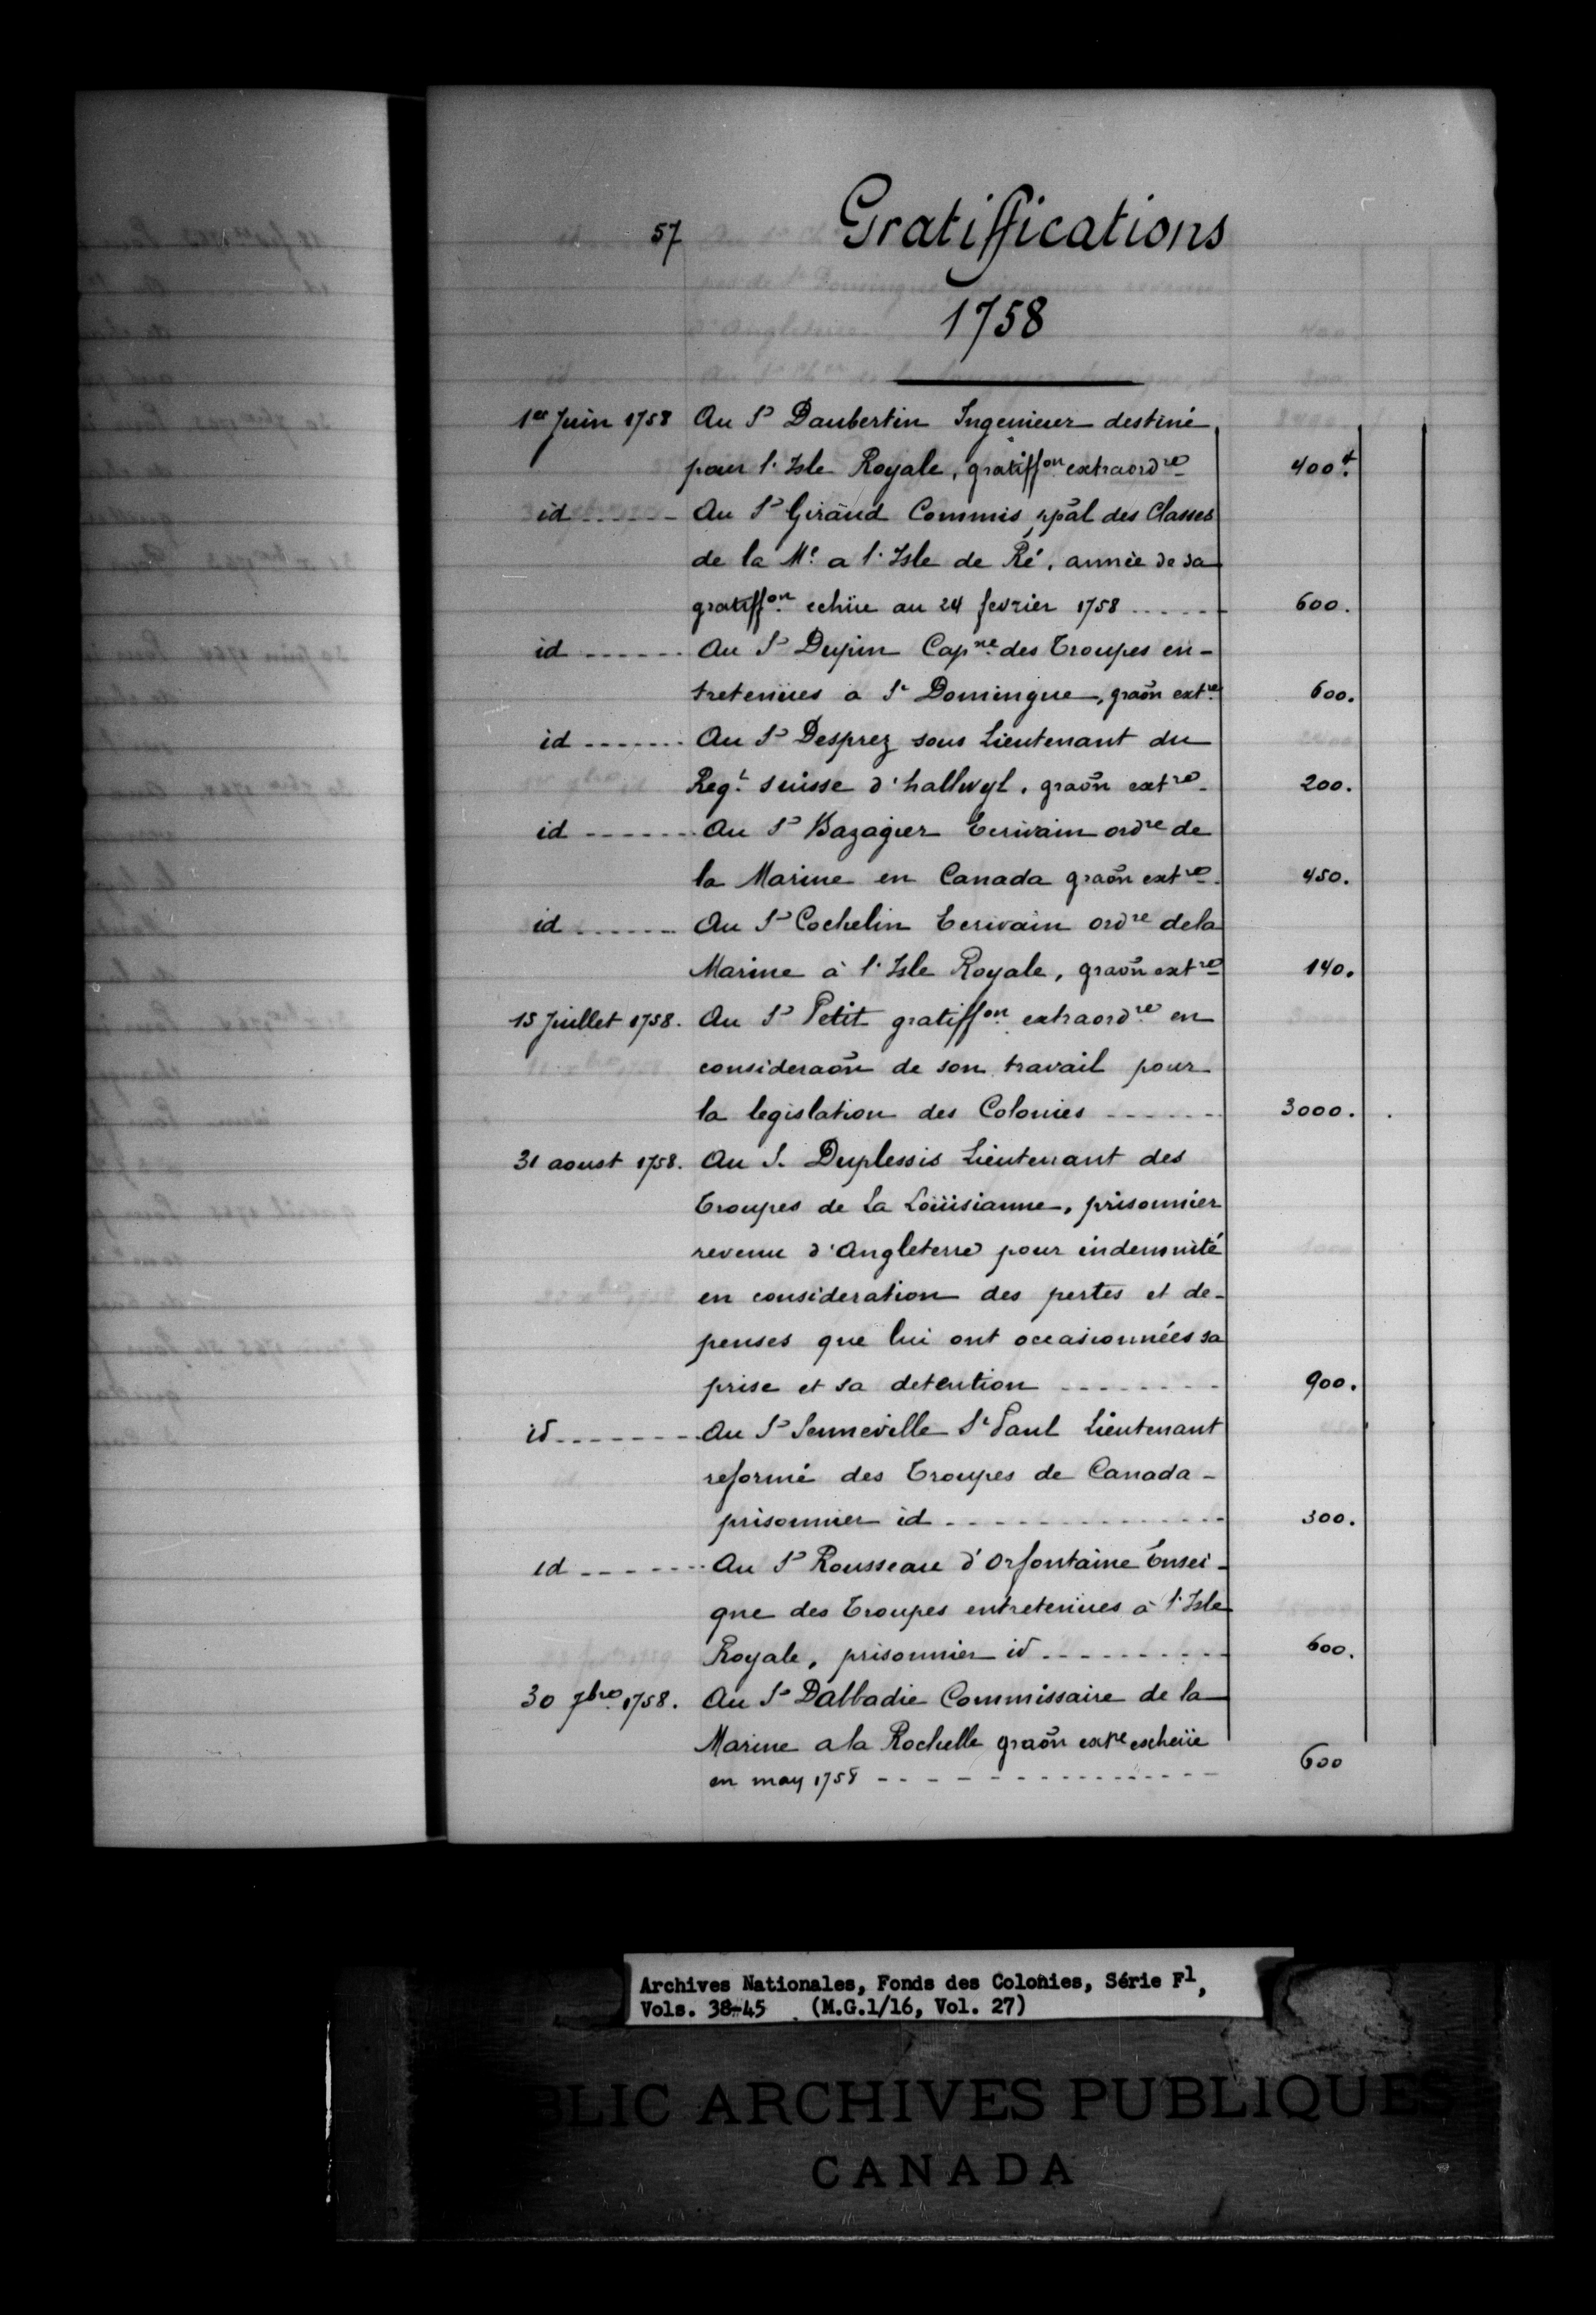 57 Gratiffications
1758
1er Juin 1758 Au Sr Daubertin Ingenieur destiné
pour l'Isle Royale, gratiffon extraordre 400#
id ------ Au Sr Giraud Commis ppal des Classes
de la Me a l'Isle de Ré, année de sa
gratiffon echüe au 24 fevrier 1758 ----- 600.
id ------ Au Sr Dupin Capne des Troupes en-
tretenües a St Domingue, graõn extre 600.
id ------- Au Sr Desprez sous Lieutenant du
Regt suisse d'hallwyl, graõn extre 200.
id ------- Au Sr Bazagier Ecrivain ordre de
la Marine en Canada graõn extre 450.
id ------- Au Sr Cochelin Ecrivain ordre dela
Marine à l'Isle Royale, graõn extre 140.
15 Juillet 1758. Au Sr Petit gratiffon extraordre en
consideraõn de son travail pour
la legislation des Colonies ------ 3000.
31 aoust 1758. Au S. Duplessis Lieutenant des
Troupes de La Loüisianne, prisonnier
revenu d'Angleterre pour indemnité
en consideration des pertes et de-
penses que lui ont occasionnées sa
prise et sa detention -------- 900.
id ------- Au Sr Senneville St Paul Lieutenant
reformé des Troupes de Canada -
prisonnier id -------------- 300.
id ------- Au Sr Rousseau d'Orfontaine Ensei-
gne des Troupes entretenües à l'Isle
Royale, prisonnier id ---------- 600.
30 7bre 1758. Au Sr Dabbadie Commissaire de la
Marine a la Rochelle graõn extre escheüe
en may 1758 ----------------- 600
Archives Nationales, Fonds des Colonies, Série F1,
Vols. 38-45 (M.G.1/16, Vol. 27)
BLIC ARCHIVES PUBLIQUES
CANADA